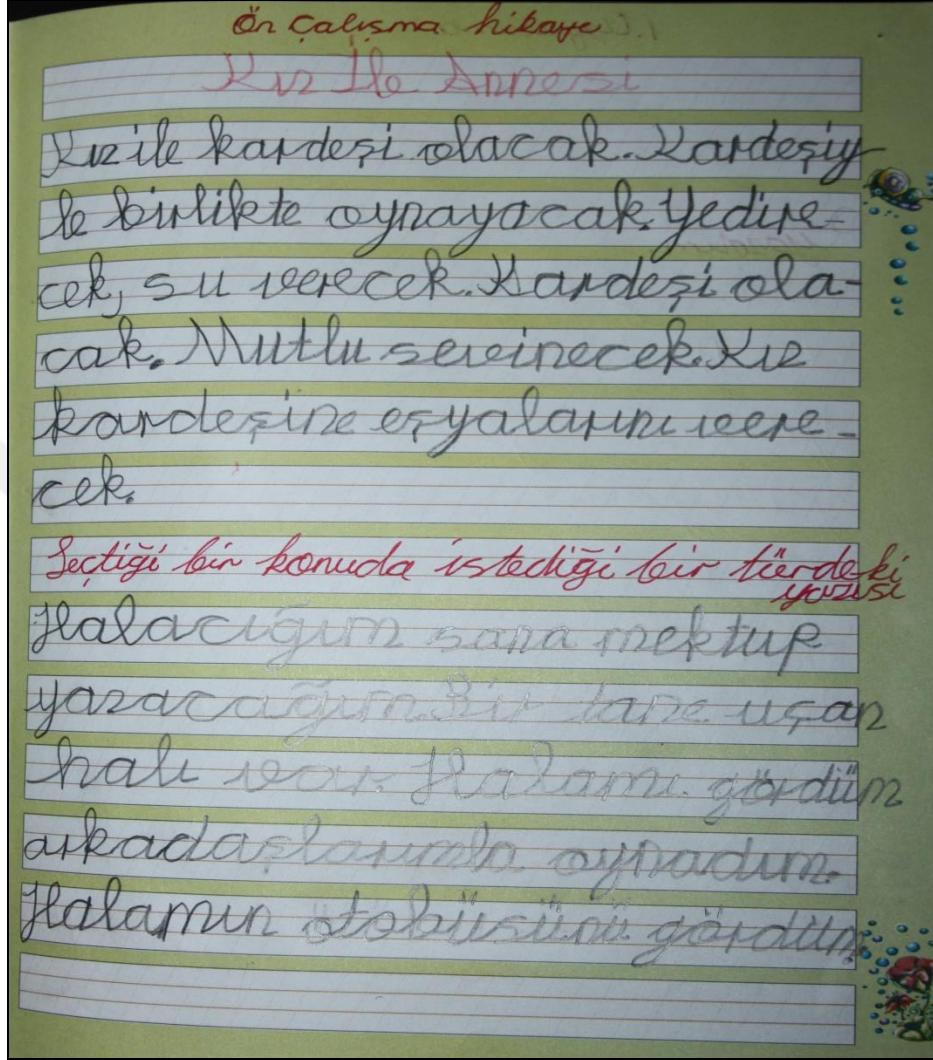 Ön Çalışma hikaye
Kız İle Annesi
Kız ile kardeşi olacak. Kardeşiy
le birlikte oynayacak. Yedire-
cek, su verecek. Kardeşi ola-
cak. Mutlu sevinecek. Kız
kardeşine eşyalarını vere-
cek.
Seçtiği bir konuda istediği bir türdeki
yazısı
Halacığım sana mektup
yazacağım. Bir tane uçan
halı var. Halamı gördüm
arkadaşlarımla oynadım.
Halamın otobüsünü gördüm.